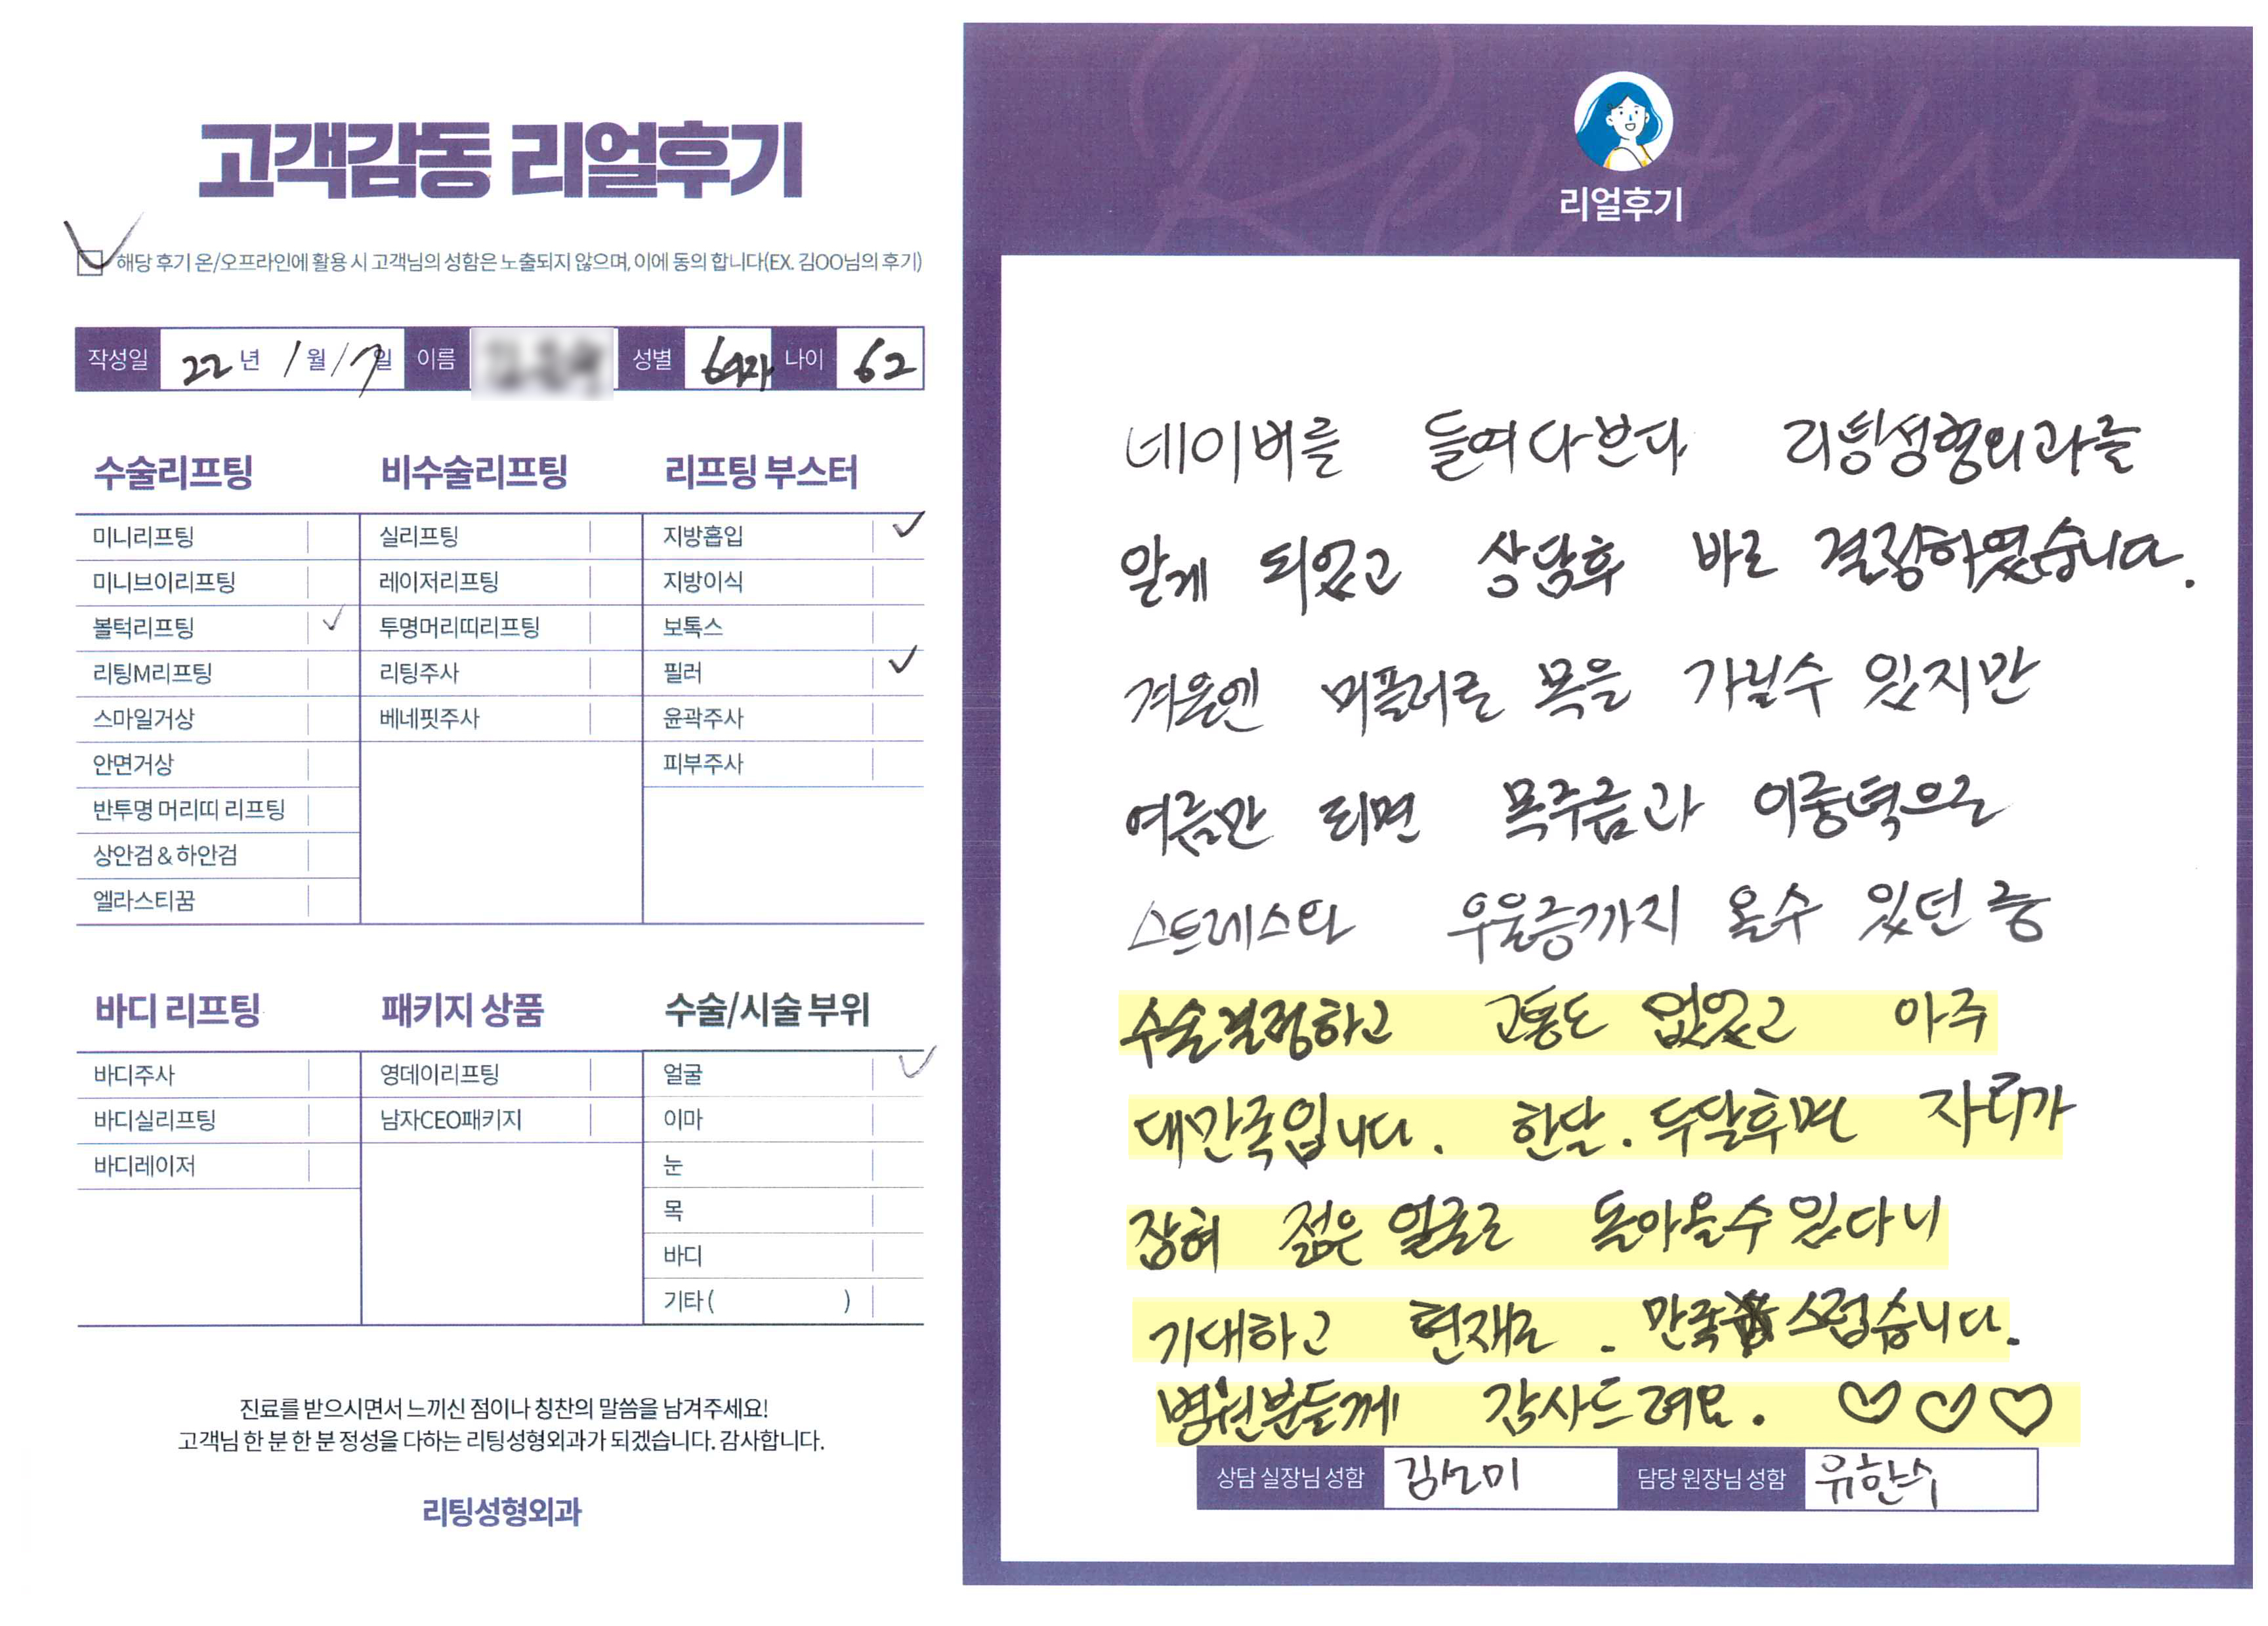 고객감동 리얼후기
해당 후기 온/오프라인에 활용 시 고객님의 성함은 노출되지 않으며, 이에 동의 합니다(EX. 김OO님의 후기)
작성일 22년 1월 17일 이름 성별 여자 나이 62
수술리프팅
미니리프팅
미니브이리프팅
볼턱리프팅
리팅M리프팅
스마일거상
안면거상
반투명 머리띠 리프팅
상안검 & 하안검
엘라스티꿈
비수술리프팅
실리프팅
레이저리프팅
투명머리띠리프팅
리팅주사
베네핏주사
리프팅 부스터
지방흡입
지방이식
보톡스
필러
윤곽주사
피부주사
바디 리프팅
바디주사
바디실리프팅
바디레이저
패키지 상품
영데이리프팅
남자CEO패키지
수술/시술 부위
얼굴
이마
눈
목
바디
기타 ( )
진료를 받으시면서 느끼신 점이나 칭찬의 말씀을 남겨주세요!
고객님 한 분 한 분 정성을 다하는 리팅성형외과가 되겠습니다. 감사합니다.
리팅성형외과
Review
리얼후기
네이버를 들여다보다 리팅성형외과를
알게 되었고 상담후 바로 결정하였습니다.
겨울엔 머플러로 목을 가릴수 있지만
여름만 되면 목주름과 이중턱으로
스트레스와 우울증까지 올수 있던 중
수술결정하고 고통도 없었고 아주
대만족입니다. 한달. 두달후면 자리가
잡혀 젊은 얼굴로 돌아올수 있다니
기대하고 현재로. 만족스럽습니다.
병원분들께 감사드려요. ♡♡♡
상담 실장님 성함 김선미 담당 원장님 성함 유한수